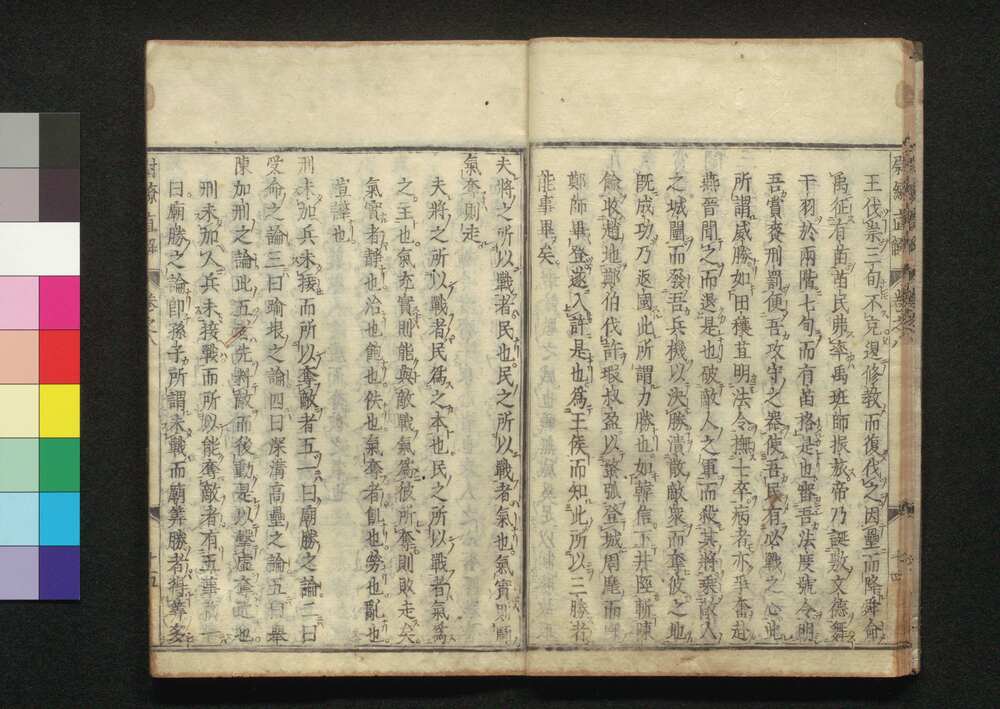 王伐崇三旬不克退修教而復伐之因壘而降舜命
禹征有苗苗民弗率禹班師振旅帝乃誕敷文德舞
干羽於兩階七旬而有苗格是也審吾法度號令明
吾賞賚刑罰便吾攻守之器使吾民有必戰之心此
所謂威勝如田穰苴明法令撫士卒病者亦爭奮赴
燕晉聞之而退是也破敵人之軍而殺其將乘敵人
之城闉而發吾兵機以決勝潰敵敵衆而奪彼之地
既成功乃返國此所謂力勝也如韓信下井陘斬陳
餘收趙地鄭伯伐許瑕叔盈以蝥弧登城周麾而呼
鄭師畢登遂入許是也爲王侯而知此所以三勝者
能事畢矣
夫將之所以戰者民也民之所以戰者氣也氣實則鬬
氣奪則走
夫將之所以戰者民爲之本也民之所以戰者氣爲
之主也氣充實則能與敵戰氣爲彼所奪則敗走矣
氣實者靜也治也飽也佚也氣奪者飢也勞也亂也
諠譁也
刑未加兵未接而所以奪敵者五一曰廟勝之論二曰
受命之論三曰踰垠之論四曰深溝高壘之論五曰舉
陳加刑之論此五者先料敵而後動是以擊虛奪之也
刑未加人兵未接戰而所以能奪敵者有五華一
曰廟勝之論即孫子所謂未戰而廟筭勝者得筭多
尉繚直解 卷之八 十五